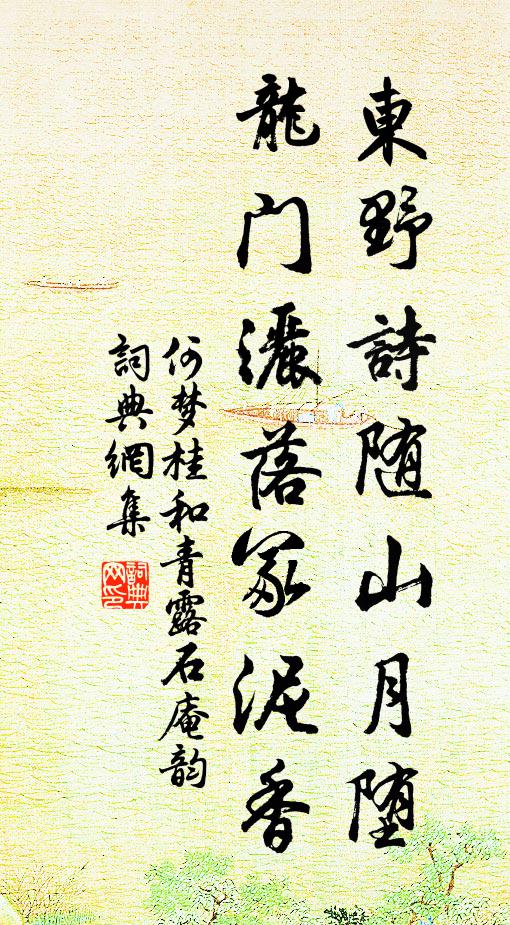 東野詩随山月堕
龍门灑落冢泥香
何梦桂和青露石庵韵
詞典網集
詞典网印